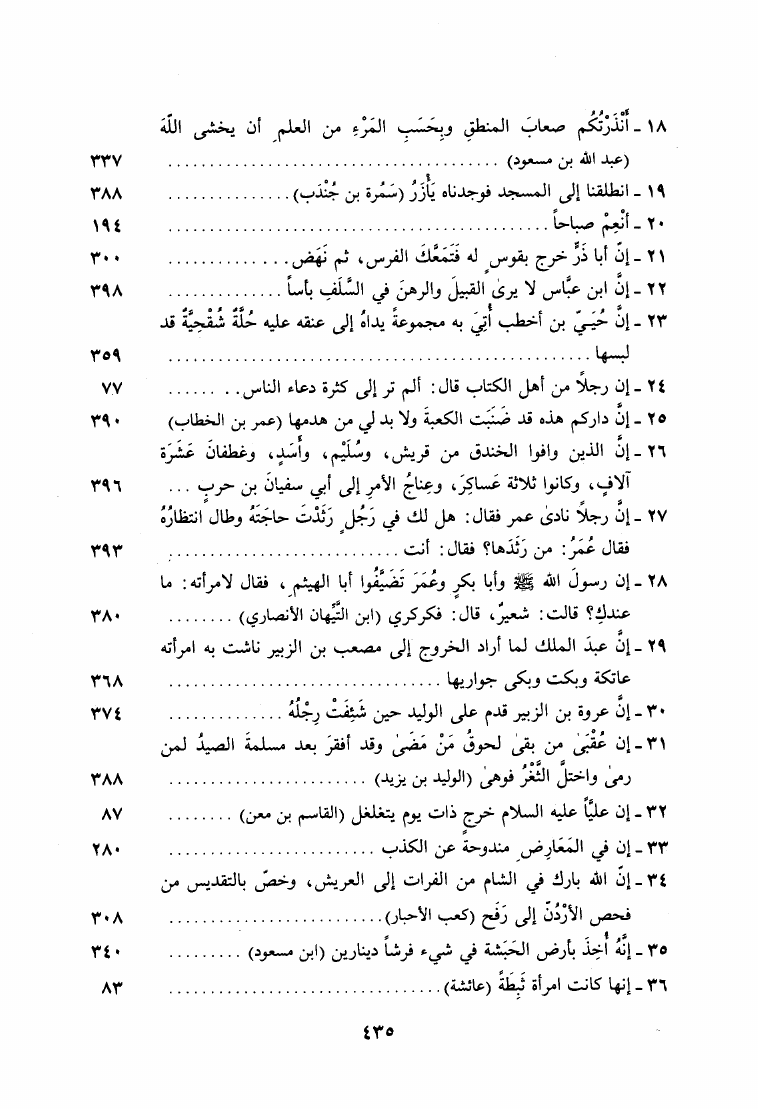 ١٨ - أَنْذَرْتُكُم صعابَ المنطقِ وبِحَسَبِ المَرْءِ من العلمِ أن يخشى اللّهَ
(عبد الله بن مسعود) ................................. ٣٣٧
١٩ - انطلقنا إلى المسجد فوجدناه يَأْزَرُ (سَمُرة بن جُنْدَب) ............... ٣٨٨
٢٠ - أنْعِمْ صباحاً ................................. ١٩٤
٢١ - إنّ أبا ذَرٍّ خرج بقوسٍ له فَتَمَعَّكَ الفرس، ثم نَهَض ............... ٣٠٠
٢٢ - إنَّ ابن عبَّاس لا يرىٰ القبيلَ والرهنَ في السَّلَفِ بأساً ............... ٣٩٨
٢٣ - إنَّ حُيَيّ بن أخطب أُتِيَ به مجموعةً يداهُ إلى عنقه عليه حُلَّةٌ شُقْحِيَّةٌ قد
لبسها ................................. ٣٥٩
٢٤ - إن رجلاً من أهل الكتاب قال: ألم تر إلى كثرة دعاء الناس ........ ٧٧
٢٥ - إنَّ داركم هذه قد ضَبَنَت الكعبةَ ولا بد لي من هدمها (عمر بن الخطاب) ٣٩٠
٢٦ - إنَّ الذين وافوا الخندق من قريش، وسُلَيْم، وأسَدٍ، وغطفانَ عَشَرَة
آلافٍ، وكانوا ثلاثة عَساكِرَ، وعِناجُ الأمرِ إلى أبي سفيانَ بن حربٍ ... ٣٩٦
٢٧ - إنَّ رجلاً نادىٰ عمر فقال: هل لك في رَجُلٍ رَثَدْتَ حاجَتَهُ وطال انتظارُهُ
فقال عُمَرُ: من رَثَدَها؟ فقال: أنت ............................ ٣٩٣
٢٨ - إن رسولَ الله ﷺ وأبا بكرٍ وعُمَرَ تَضَيَّفُوا أبا الهيثمِ، فقال لامرأته: ما
عندكِ؟ قالت: شعيرٌ، قال: فكركري (ابن التَّيِّهان الأنصاري) ........ ٣٨٠
٢٩ - إنَّ عبدَ الملك لما أراد الخروج إلى مصعب بن الزبير ناشت به امرأته
عاتكة وبكت وبكى جواريها ................................. ٣٦٨
٣٠ - إنَّ عروة بن الزبير قدم على الوليد حين شَئِفَتْ رِجْلُهُ .............. ٣٧٤
٣١ - إن عُقْبَىٰ من بقىٰ لحوقُ مَنْ مَضَىٰ وقد أفقرَ بعد مسلمةَ الصيدُ لمن
رمىٰ واختلَّ الثَّغْرُ فوهىٰ (الوليد بن يزيد) ........................ ٣٨٨
٣٢ - إن عليًّا عليه السلام خرج ذات يوم يتغلغل (القاسم بن معن) ........ ٨٧
٣٣ - إن في المَعَارِضِ مندوحةً عن الكذب ........................ ٢٨٠
٣٤ - إنّ الله بارك في الشام من الفرات إلى العريش، وخصّ بالتقديس من
فحص الأرْدُنّ إلى رَفَح (كعب الأحبار) ........................ ٣٠٨
٣٥ - إنَّهُ أُخِذَ بأرض الحَبَشة في شيء فرشاً دينارين (ابن مسعود) ......... ٣٤٠
٣٦ - إنها كانت امرأة ثَبِطَةً (عائشة) ................................. ٨٣
٤٣٥